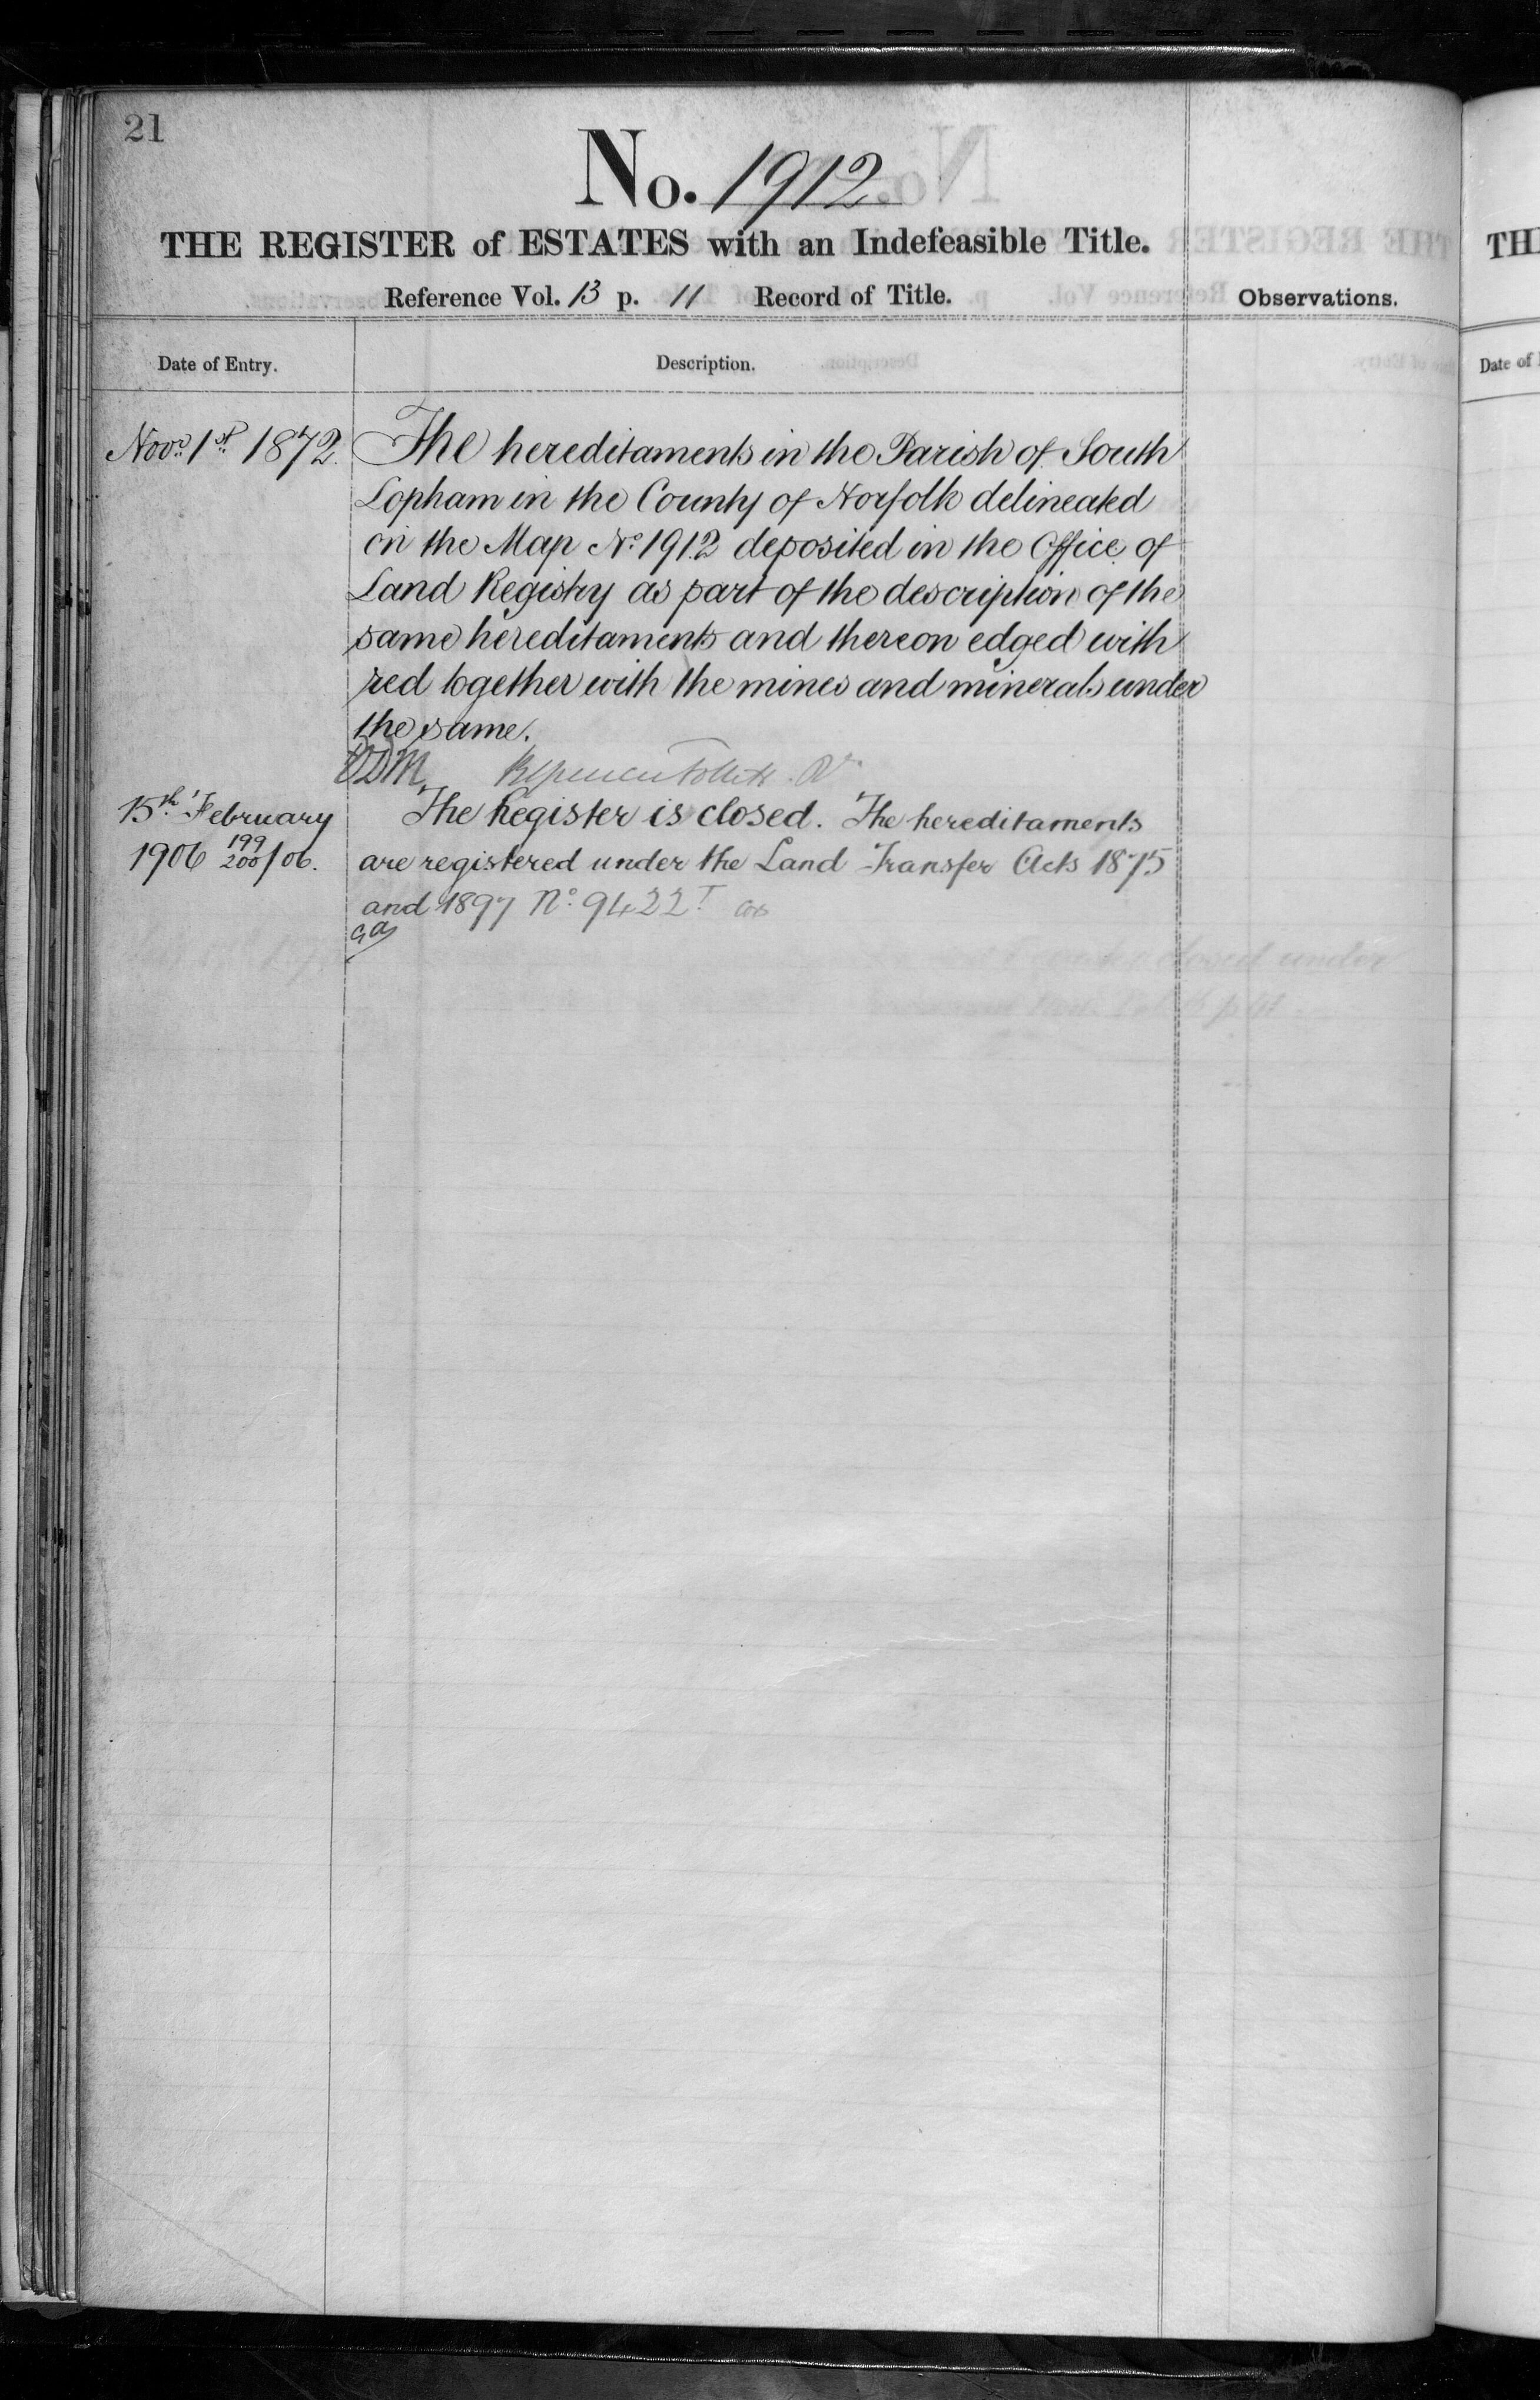 21
No. 1912
THE REGISTER of ESTATES with an Indefeasible Title.
Reference Vol. 13 p. 11 Record of Title.
Observations.
Date of Entry.
Description.
Novr. 1st. 1872.
The hereditaments in the Parish of South
Lopham in the County of Norfolk delineated
on the Map No. 1912 deposited in the Office of
Land Registry as part of the description of the
same hereditaments and thereon edged with
red together with the mines and minerals under
the same.
15th. February
1906 199
200/06.
The Register is closed. The hereditaments
are registered under the Land Transfer Acts 1875
and 1897 No. 9422
TH
Date of